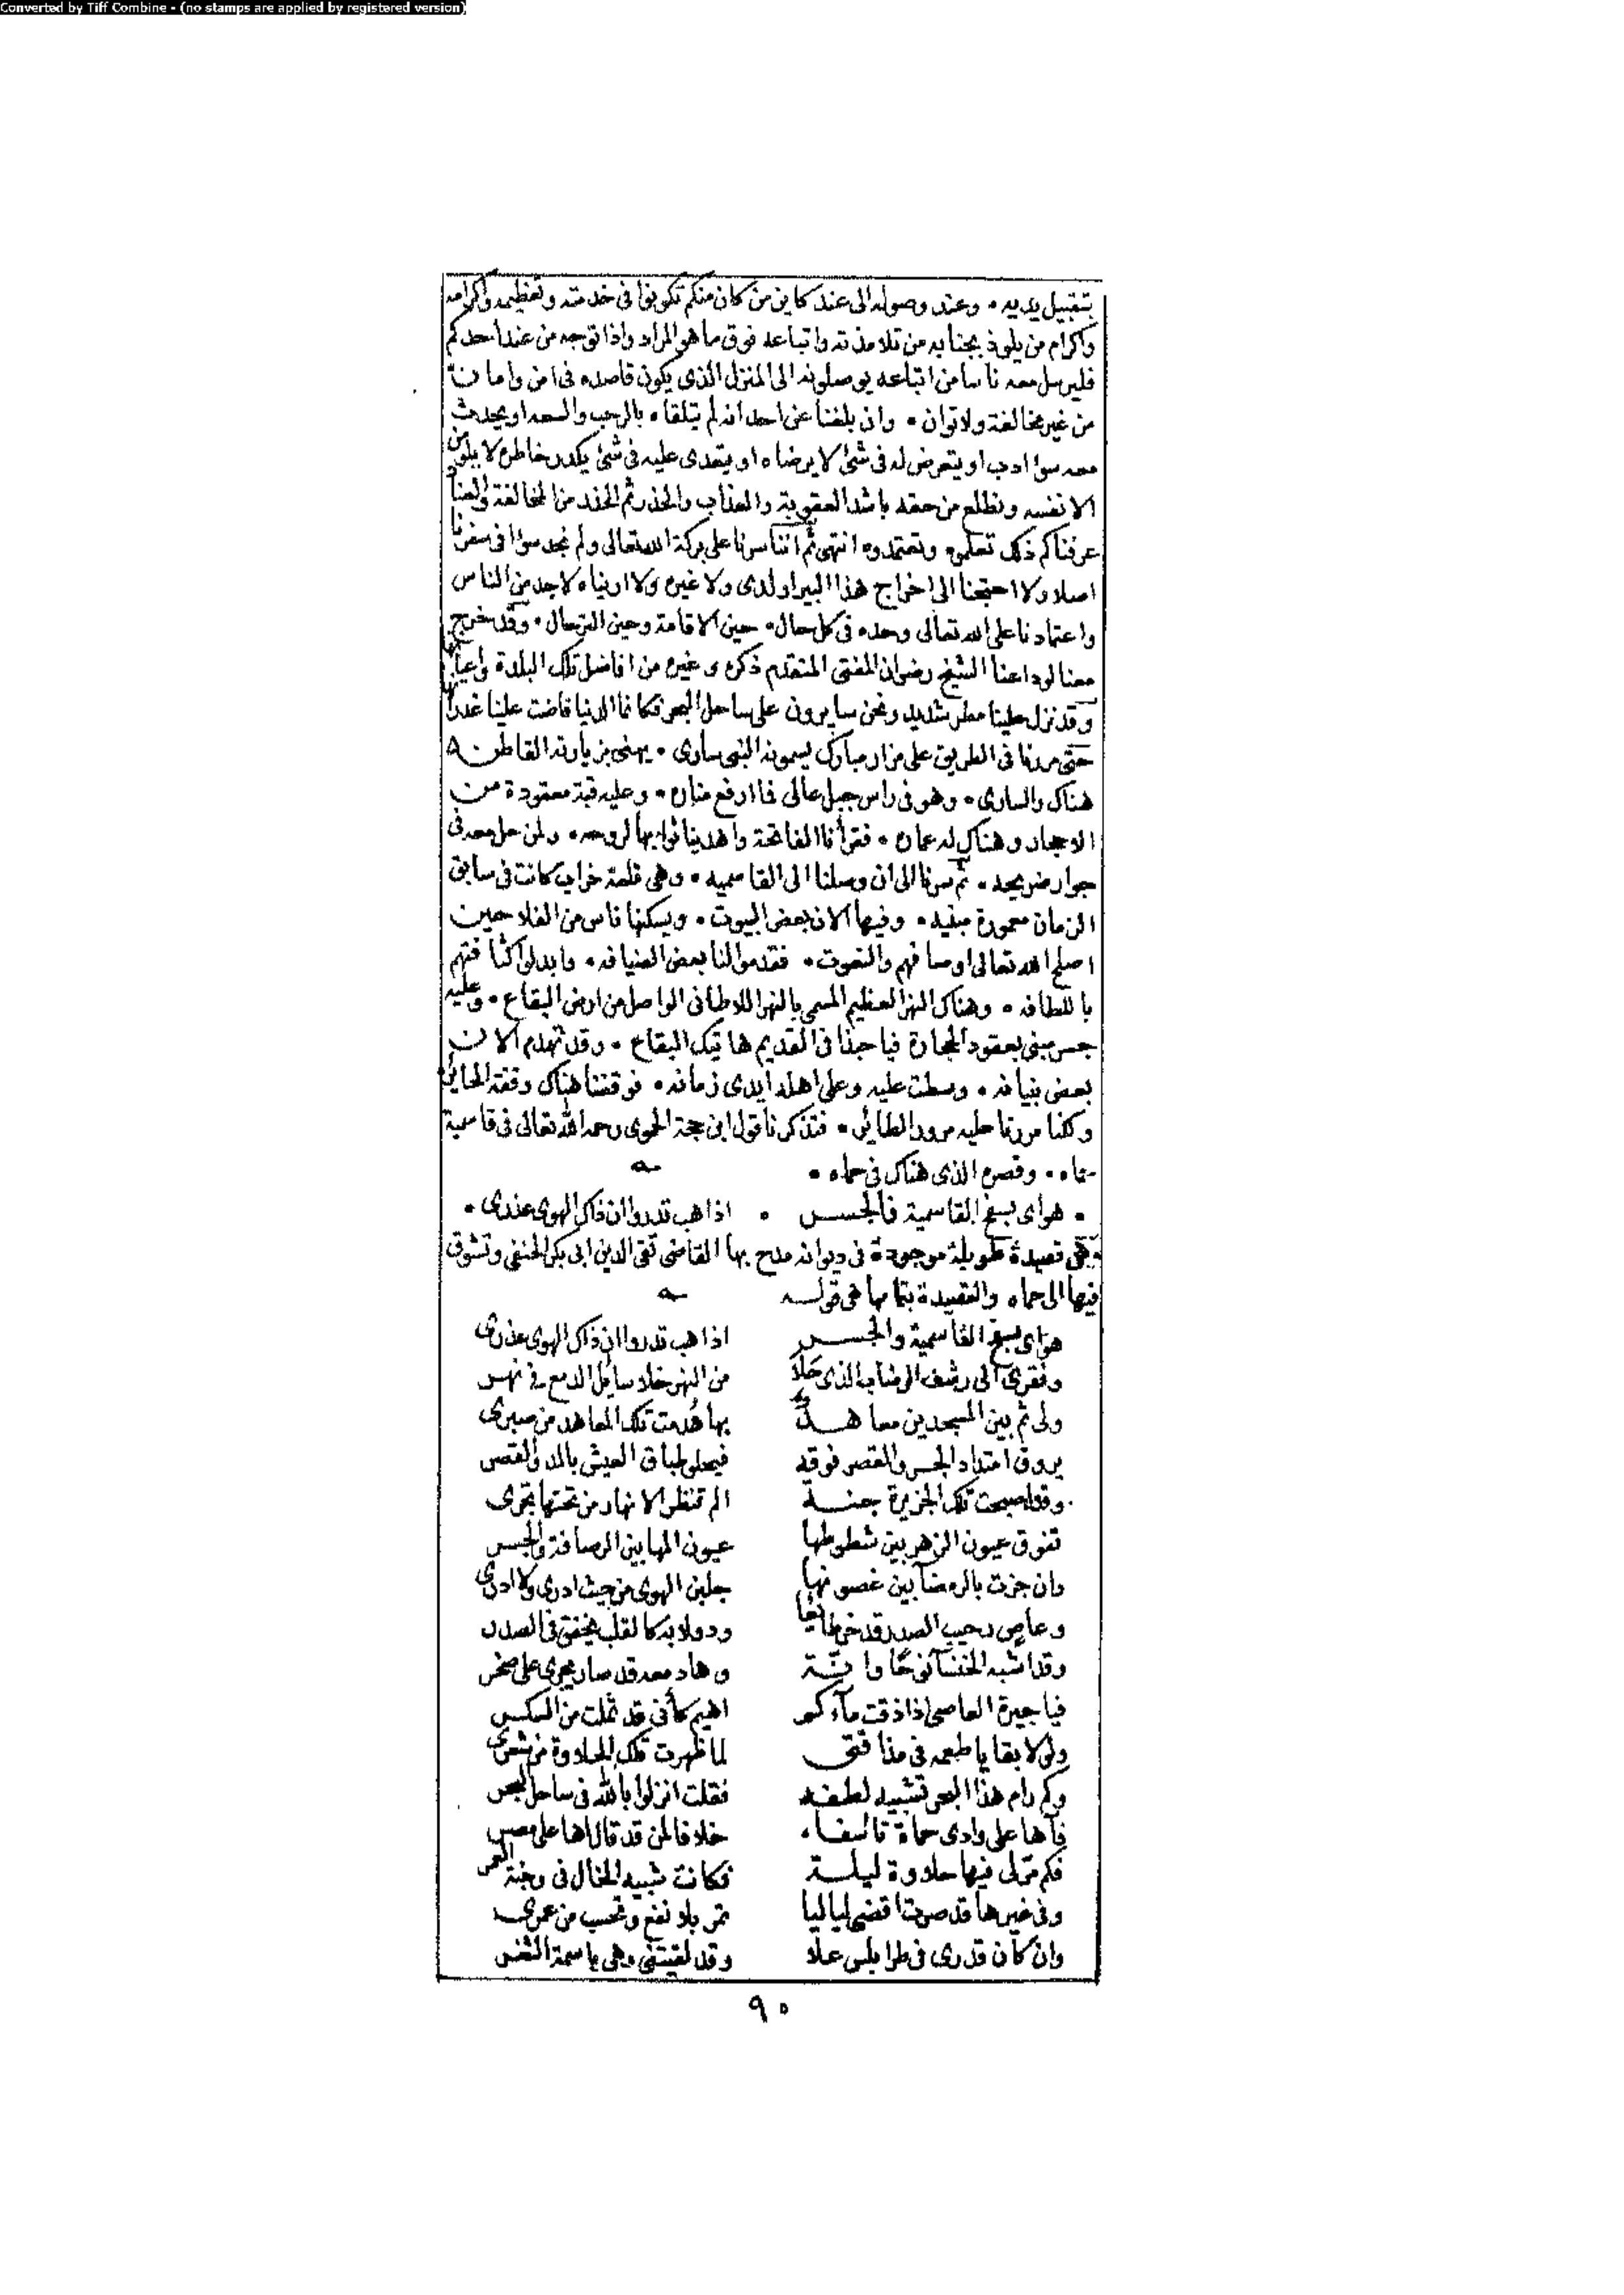 Converted by Tiff Combine - (no stamps are applied by registered version)
بتقبيل يديه • وعند وصوله الى عند كاين من كان منكم تكونوا فى خدمته وتعظيمه واكرامه
واكرام من يلوذ بجنابه من تلامذته واتباعه فوق ما هو المراد واذا توجه من عند احدكم
فليرسل معه ناسا من اتباعه يوصلونه الى المنزل الذى يكون قاصده فى امن وامان
من غير مخالفة ولا توان • وان بلغنا عن احد انه لم يتلقاه بالرحب والسعه او يحدث
معه سوء ادب او يتعرض له فى شئ لا يرضاه او يتعدى عليه فى شئ يكدر خاطره لا يلومن
الا نفسه ونطلع من حقه باشد العقوبة والعذاب والحذر ثم الحذر من المخالفة والعناد
عرفناكم ذلك تعلموه وتعتمدوه انتهى ثم اننا سرنا على بركة الله تعالى ولم نجد سوا فى سفرنا
اصلا ولا احتجنا الى اخراج هذا البيراولدى ولا غيره ولا اريناه لاحد من الناس
واعتمادنا على الله تعالى وحده فى كل حال • حين الاقامة وحين الترحال • وقد خرج
معنا لوداعنا الشيخ رضوان المفتى المتقدم ذكره وغيره من افاضل تلك البلدة واعيانها
وقد نزل علينا مطر شديد ونحن سايرون على ساحل البحر فكانما الدنيا فاضت علينا غدرانها
حتى مررنا فى الطريق على مزار مبارك يسمونه النبى سارى • يهنى بزيارته القاطن
هناك والسارى • وهو فى راس جبل عالى فما ارفع مناره • وعليه قبة معقودة من
الاحجار وهناك له عماره • فقرأنا الفاتحة واهدينا ثوابها لروحه • ولمن حل معه فى
جوار ضريحه • ثم سرنا الى ان وصلنا الى القاسميه • وهى قلعة خراب كانت فى سابق
الزمان معمورة مبنيه • وفيها الان بعض البيوت • ويسكنها ناس من الفلاحين
اصلح الله تعالى اوصافهم والنعوت • فقدموا لنا بعض الضيافه • وابدلوا كثافتهم
باللطافه • وهناك النهر العظيم المسمى بالنهر اللاطانى الواصل من ارض البقاع • وعليه
جسر مبنى بعقود الحجارة فيا حبذا فى القديم هاتيك البقاع • وقد تهدم الان
بعض بنيانه • وسطت عليه وعلى اهله ايدى زمانه • فوقفنا هناك وقفة الحائر
وكنا مررنا عليه مرور الطائر • فتذكرنا قول ابن حجة الحموى رحمه الله تعالى فى قاسمية
حماه • وقصره الذى هناك فى حماه •
• هواى بسفح القاسمية فالجسر • اذا هب تدروا ان ذاك الهوى عذرى •
وهى قصيدة طويلة موجودة فى ديوانه مدح بها القاضى تقى الدين ابى بكر الحنفى وتشوق
فيها الى حماه والقصيدة بتمامها هى قوله
هواى بسفح القاسمية والجسر اذا هب تدروا ان ذاك الهوى عذرى
وفقرى الى رشف الرضاب الذى حلا من النهر خلا سايل الدمع فى نهر
ولى ثم بين المسجدين معاهد بها هُدمت تلك المعاهد من صبرى
يروق امتداد الجسر والقصر فوقه فيحلو طباق العيش بالمد والقصر
وقد اصبحت تلك الجزيرة جنة الم تنظر الانهار من تحتها تجرى
تفوق عيون الزهر بين شطوطها عيون المها بين الرصافة والجسر
وان جزت بالرمضا بين غصونها جلبن الهوى من حيث ادرى ولا ادرى
وعاصٍ رحيب الصدر قد خر طايعا ودولابه كالقلب يخفق فى الصدر
وقد اشبه الخنسآ نوحا وانة وهاد معه قد صار يجرى على صخر
فيا جيرة العاصى اذا ذقت مآءكم اهيم كأنى قد ثملت من السكر
ولولا بقايا طعمه فى مذاقتى لما ظهرت تلك الحلاوة من شعرى
وكم رام هذا البحر تشبيه لطفه فقلت انزلوا بالله فى ساحل البحر
فآها على وادى حماة تاسفا خلافا لمن قد قال اها على مصر
فكم مر لى فيها حلاوة ليلة فكانت شبيه الخال فى وجنة العمر
وفى غيرها قد صرت اقضى لياليا تمر بلا نفع وتحسب من عمرى
وان كان قدرى فى طرابلس علا وقد لقيتنى وهى باسمة الثغر
٩٥